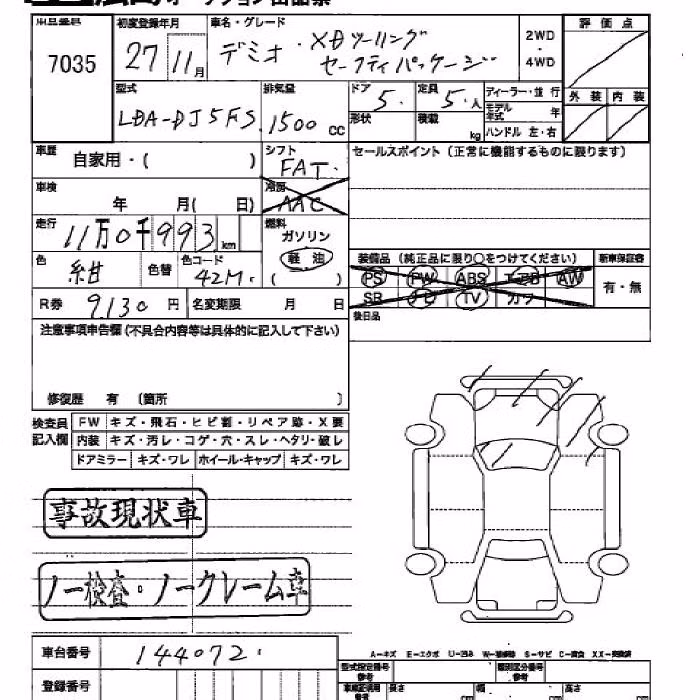 7035
初度登録年月
27 11月
車名・グレード
デミオ・XDツーリング
セーフティパッケージ
2WD
・
4WD
評価点
型式
LDA-DJ5FS
排気量
1500 CC
ドア
5.
定員
5.人
形状
積載
kg
ディーラー・並行
モデル年式 年
ハンドル 左・右
外装 内装
車歴
自家用・( )
シフト
FAT.
セールスポイント(正常に機能するものに限ります)
車検
年 月( 日)
冷房
AAC
走行
11万0千993km
燃料
ガソリン
軽油
( )
色
紺
色替
色コード
42M.
装備品(純正品に限り○をつけてください)
PS PW ABS エアB AW
SR ナビ TV カワ
新車保証書
有・無
R券 9,130円
名変期限 月 日
後日品
注意事項申告欄(不具合内容等は具体的に記入して下さい)
修復歴 有 〔箇所 〕
検査員
記入欄
FW キズ・飛石・ヒビ割・リペア跡・X要
内装 キズ・汚レ・コゲ・穴・スレ・ヘタリ・破レ
ドアミラー キズ・ワレ ホイール・キャップ キズ・ワレ
事故現状車
ノー検査・ノークレーム車
車台番号
144072.
登録番号
A-キズ E-エクボ U-凹み W-補修跡 S-サビ C-腐食 XX-交換済
型式指定番号
参考
類別区分番号
参考
長さ
幅
高さ